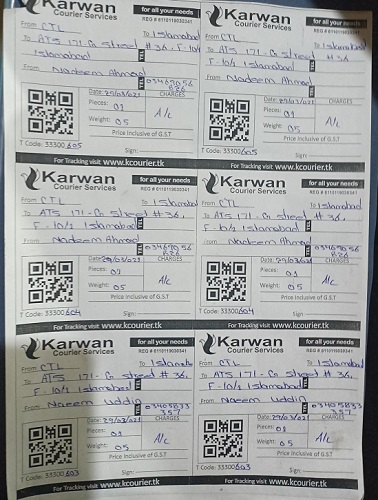 Karwan
Courier Services
for all your needs
REG # 0110119039341
From CTL To Islamabad
To ATS 171-G street #36, F-10/
Islamabad
From Nadeem Ahmad
Date: 29/03/021 CHARGES
Pieces: 01
A/c
Weight: 0.5
Price Inclusive of G.S.T
T Code: 33300605 Sign:
For Tracking visit www.kcourier.tk
Karwan
Courier Services
for all your needs
REG # 0110119039341
From CTL To Islamabad
To ATS 171-G street #36
F-10/1 Islamabad
From Nadeem Ahmad
Date: 29/03/021 CHARGES
Pieces: 01
A/c
Weight: 0.5
Price Inclusive of G.S.T
T Code: 33300605 Sign:
For Tracking visit www.kcourier.tk
Karwan
Courier Services
for all your needs
REG # 0110119039341
From CTL To Islamabad
To ATS 171-G street #36,
F-10/1 Islamabad
From Nadeem Ahmad
Date: 29/03/021 CHARGES
Pieces: 01
A/c
Weight: 0.5
Price Inclusive of G.S.T
T Code: 33300604 Sign:
For Tracking visit www.kcourier.tk
Karwan
Courier Services
for all your needs
REG # 0110119039341
From CTL To Islamabad
To ATS 171-G street #36,
F-10/1 Islamabad
From Nadeem Ahmad
Date: 29/03/021 CHARGES
Pieces: 01
A/c
Weight: 0.5
Price Inclusive of G.S.T
T Code: 33300604 Sign:
For Tracking visit www.kcourier.tk
Karwan
Courier Services
for all your needs
REG # 0110119039341
From CTL To Islamabad
To ATS 171-G street #36,
F-10/1 Islamabad
From Naeem Uddin 03405833
357
Date: 29/03/021 CHARGES
Pieces: 01
A/c
Weight: 0.5
Price Inclusive of G.S.T
T Code: 33300603 Sign:
For Tracking visit www.kcourier.tk
Karwan
Courier Services
for all your needs
REG # 0110119039341
From CTL To Islamabad
To ATS 171-G street #36,
F-10/1 Islamabad
From Naeem Uddin 03405833
357
Date: 29/03/021 CHARGES
Pieces: 01
A/c
Weight: 0.5
Price Inclusive of G.S.T
T Code: 33300603 Sign:
For Tracking visit www.kcourier.tk